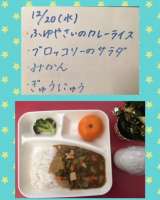 12/20(水)
・ふゆやさいのカレーライス
・ブロッコリーのサラダ
・みかん
・ぎゅうにゅう